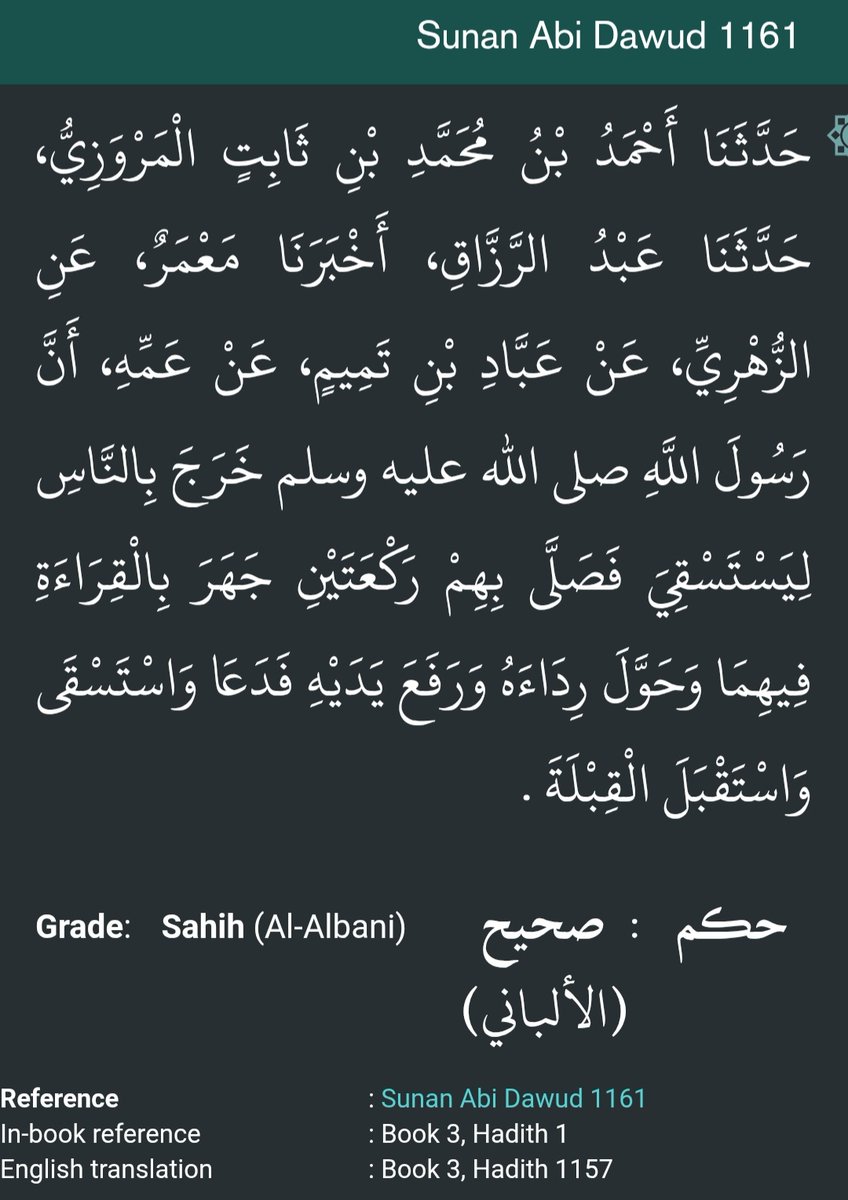 Sunan Abi Dawud 1161
حَدَّثَنَا أَحْمَدُ بْنُ مُحَمَّدِ بْنِ ثَابِتٍ الْمَرْوَزِيُّ،
حَدَّثَنَا عَبْدُ الرَّزَّاقِ، أَخْبَرَنَا مَعْمَرٌ، عَنِ
الزُّهْرِيِّ، عَنْ عَبَّادِ بْنِ تَمِيمٍ، عَنْ عَمِّهِ، أَنَّ
رَسُولَ اللَّهِ صلى الله عليه وسلم خَرَجَ بِالنَّاسِ
لِيَسْتَسْقِيَ فَصَلَّى بِهِمْ رَكْعَتَيْنِ جَهَرَ بِالْقِرَاءَةِ
فِيهِمَا وَحَوَّلَ رِدَاءَهُ وَرَفَعَ يَدَيْهِ فَدَعَا وَاسْتَسْقَى
وَاسْتَقْبَلَ الْقِبْلَةَ ‏.‏
Grade: Sahih (Al-Albani)
حكم : صحيح
(الألباني)
Reference : Sunan Abi Dawud 1161
In-book reference : Book 3, Hadith 1
English translation : Book 3, Hadith 1157